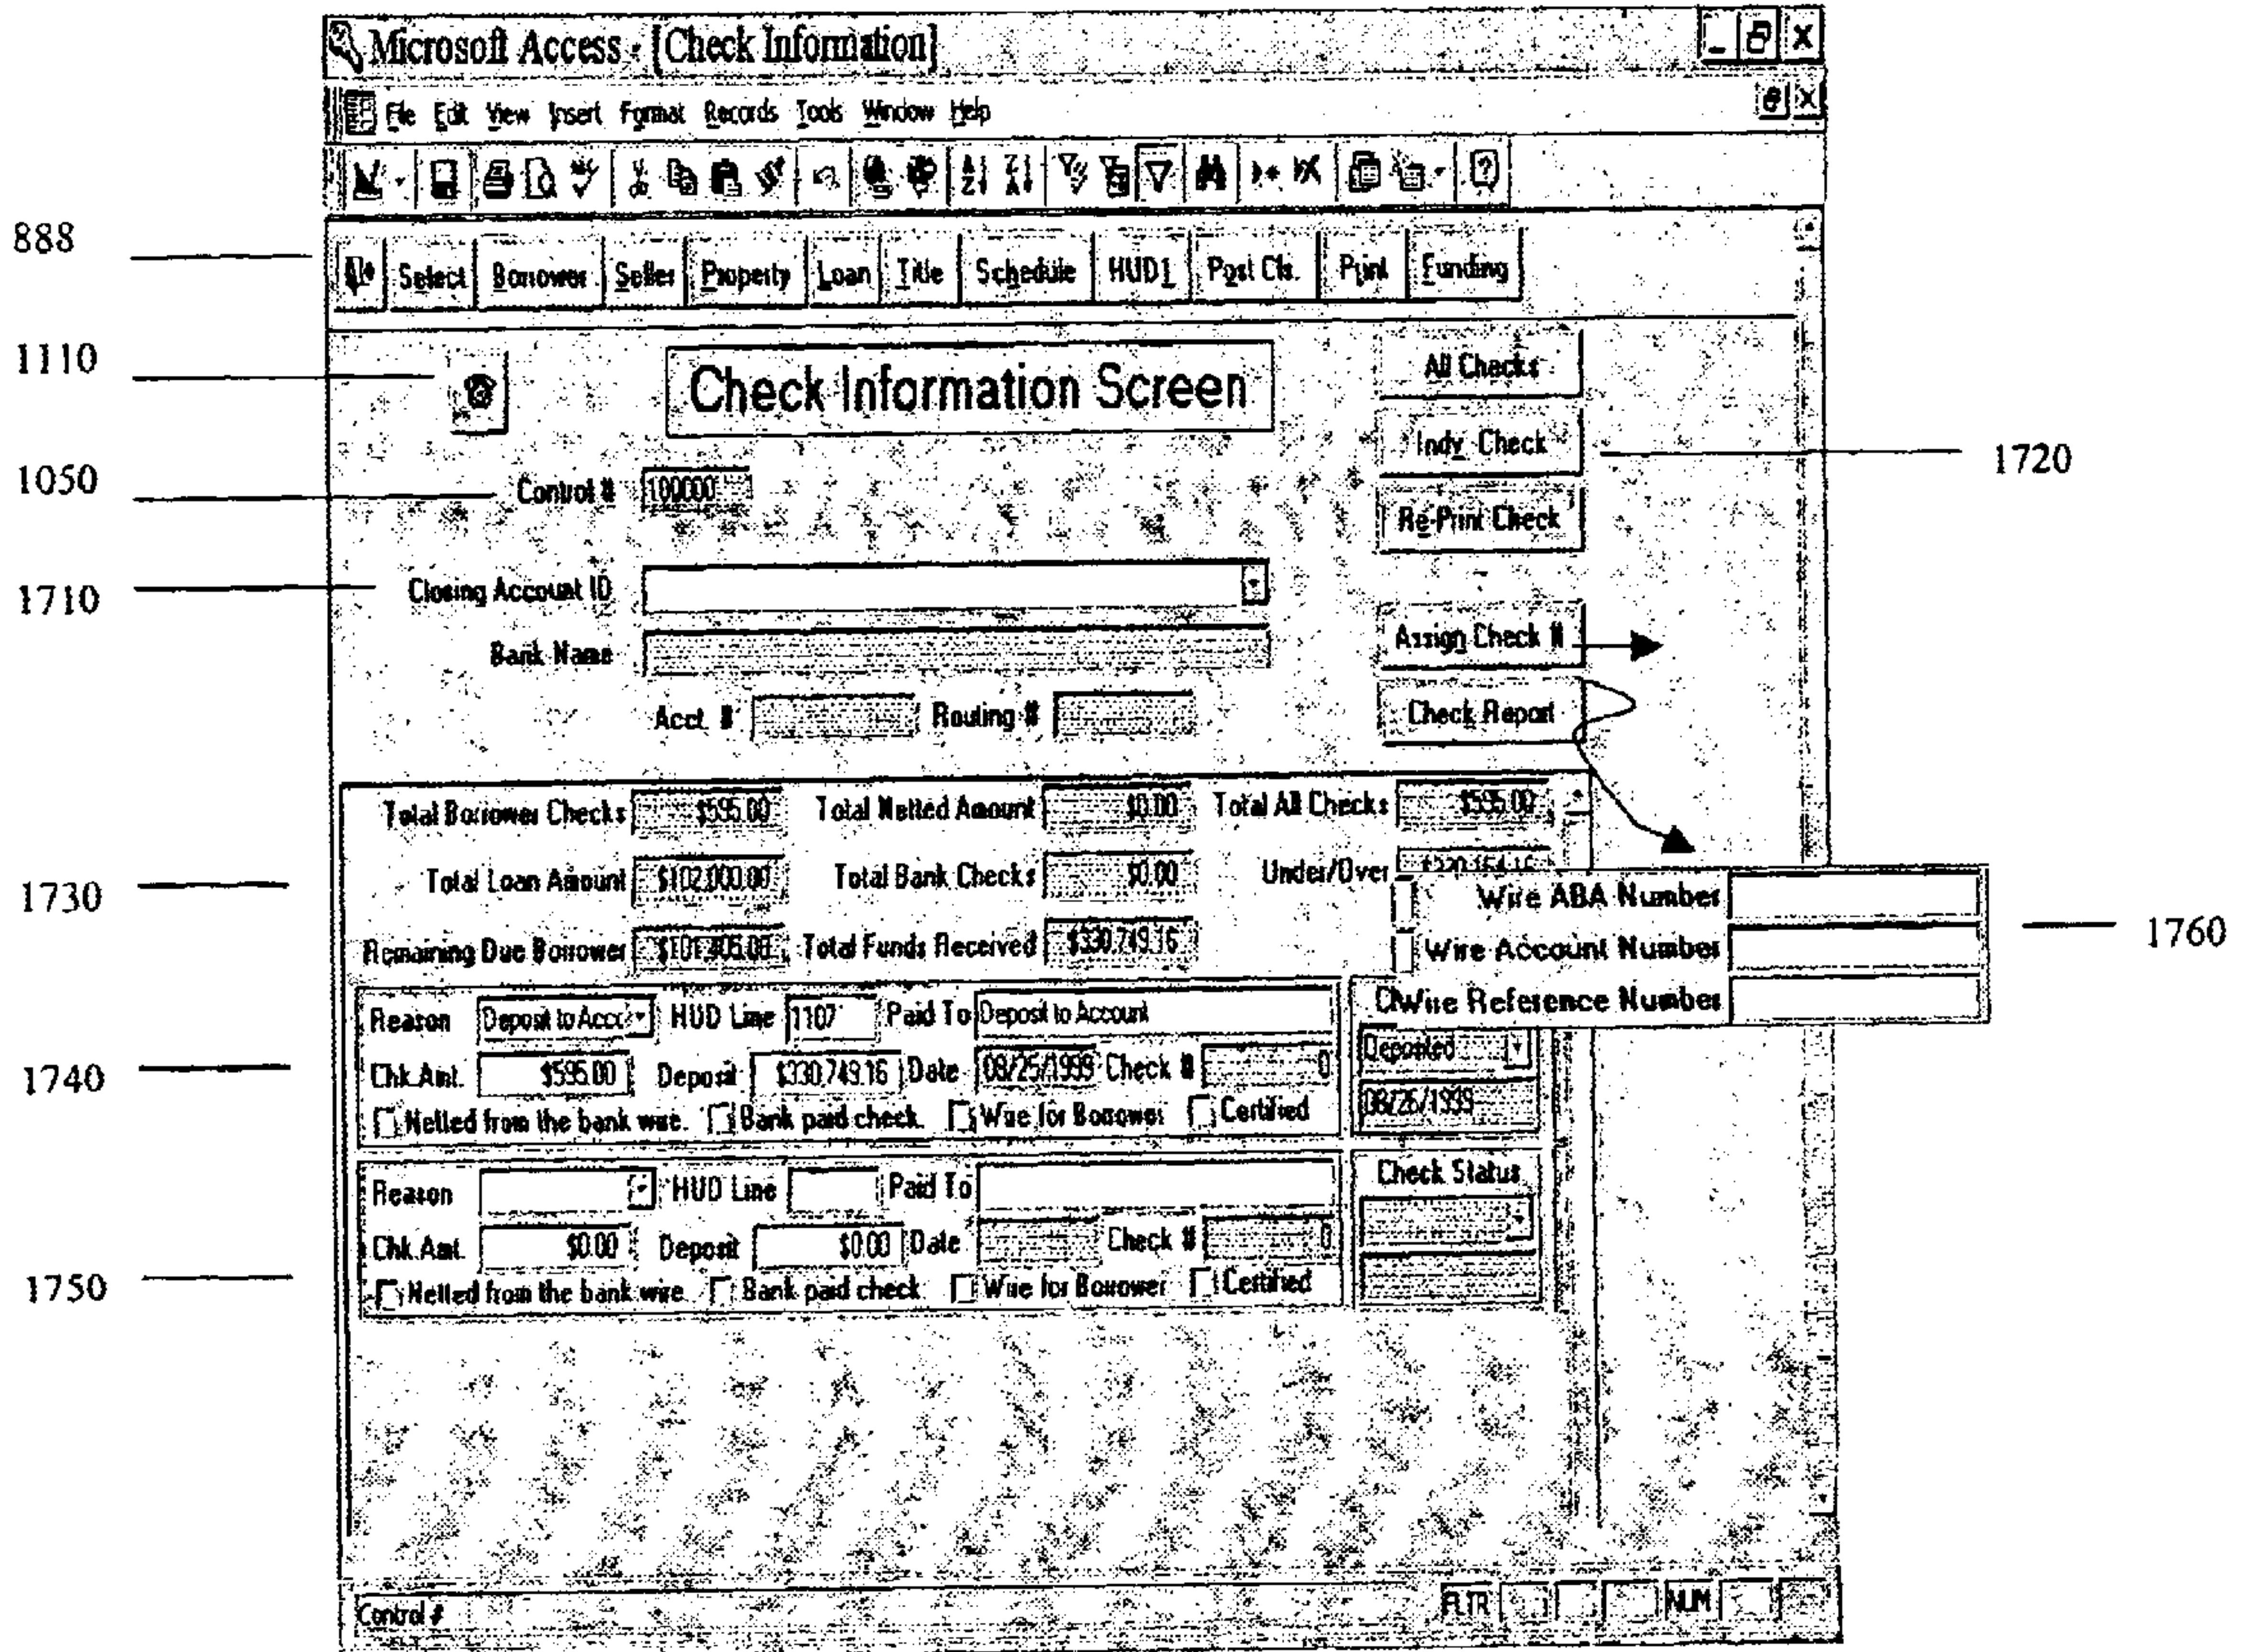 Microsoft Access - [Check Information]
File Edit View Insert Format Records Tools Window Help
888
Select Borrower Seller Property Loan Title Schedule HUD1 Post Cls. Print Funding
1110
Check Information Screen
All Checks
Indv. Check
1720
1050
Control # 100000
Re-Print Check
1710
Closing Account ID
Assign Check #
Bank Name
Acct. # Routing #
Check Report
Total Borrower Checks $595.00 Total Netted Amount $0.00 Total All Checks $595.00
1730
Total Loan Amount $102,000.00 Total Bank Checks $0.00 Under/Over
Wire ABA Number
1760
Remaining Due Borrower Total Funds Received $330,749.16
Wire Account Number
Wire Reference Number
Reason Deposit to Acc HUD Line 1107 Paid To Deposit to Account
1740
Chk.Amt. $595.00 Deposit $330,749.16 Date 08/25/1999 Check # 0 Deposited
Netted from the bank wire. Bank paid check. Wire for Borrower Certified 08/26/1999
Reason HUD Line Paid To Check Status
Chk.Amt. $0.00 Deposit $0.00 Date Check # 0
1750
Netted from the bank wire. Bank paid check. Wire for Borrower Certified
Control # FLTR NUM